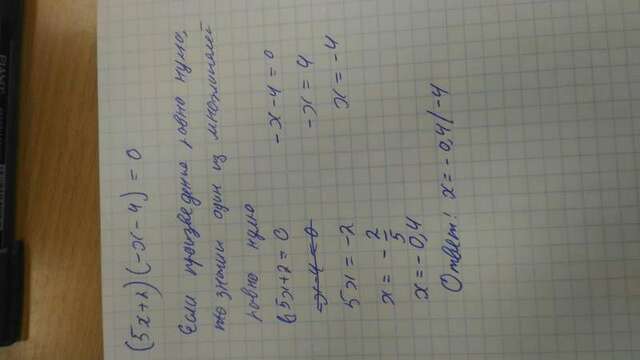 (5x+2)(-x-4) = 0
Если произведение равно нулю,
то значит один из множителей
равно нулю
5x+2=0 -x-4=0
-x-4=0
5x=-2 -x=4
x=-2/5 x=-4
x=-0,4
Ответ: x=-0,4/-4